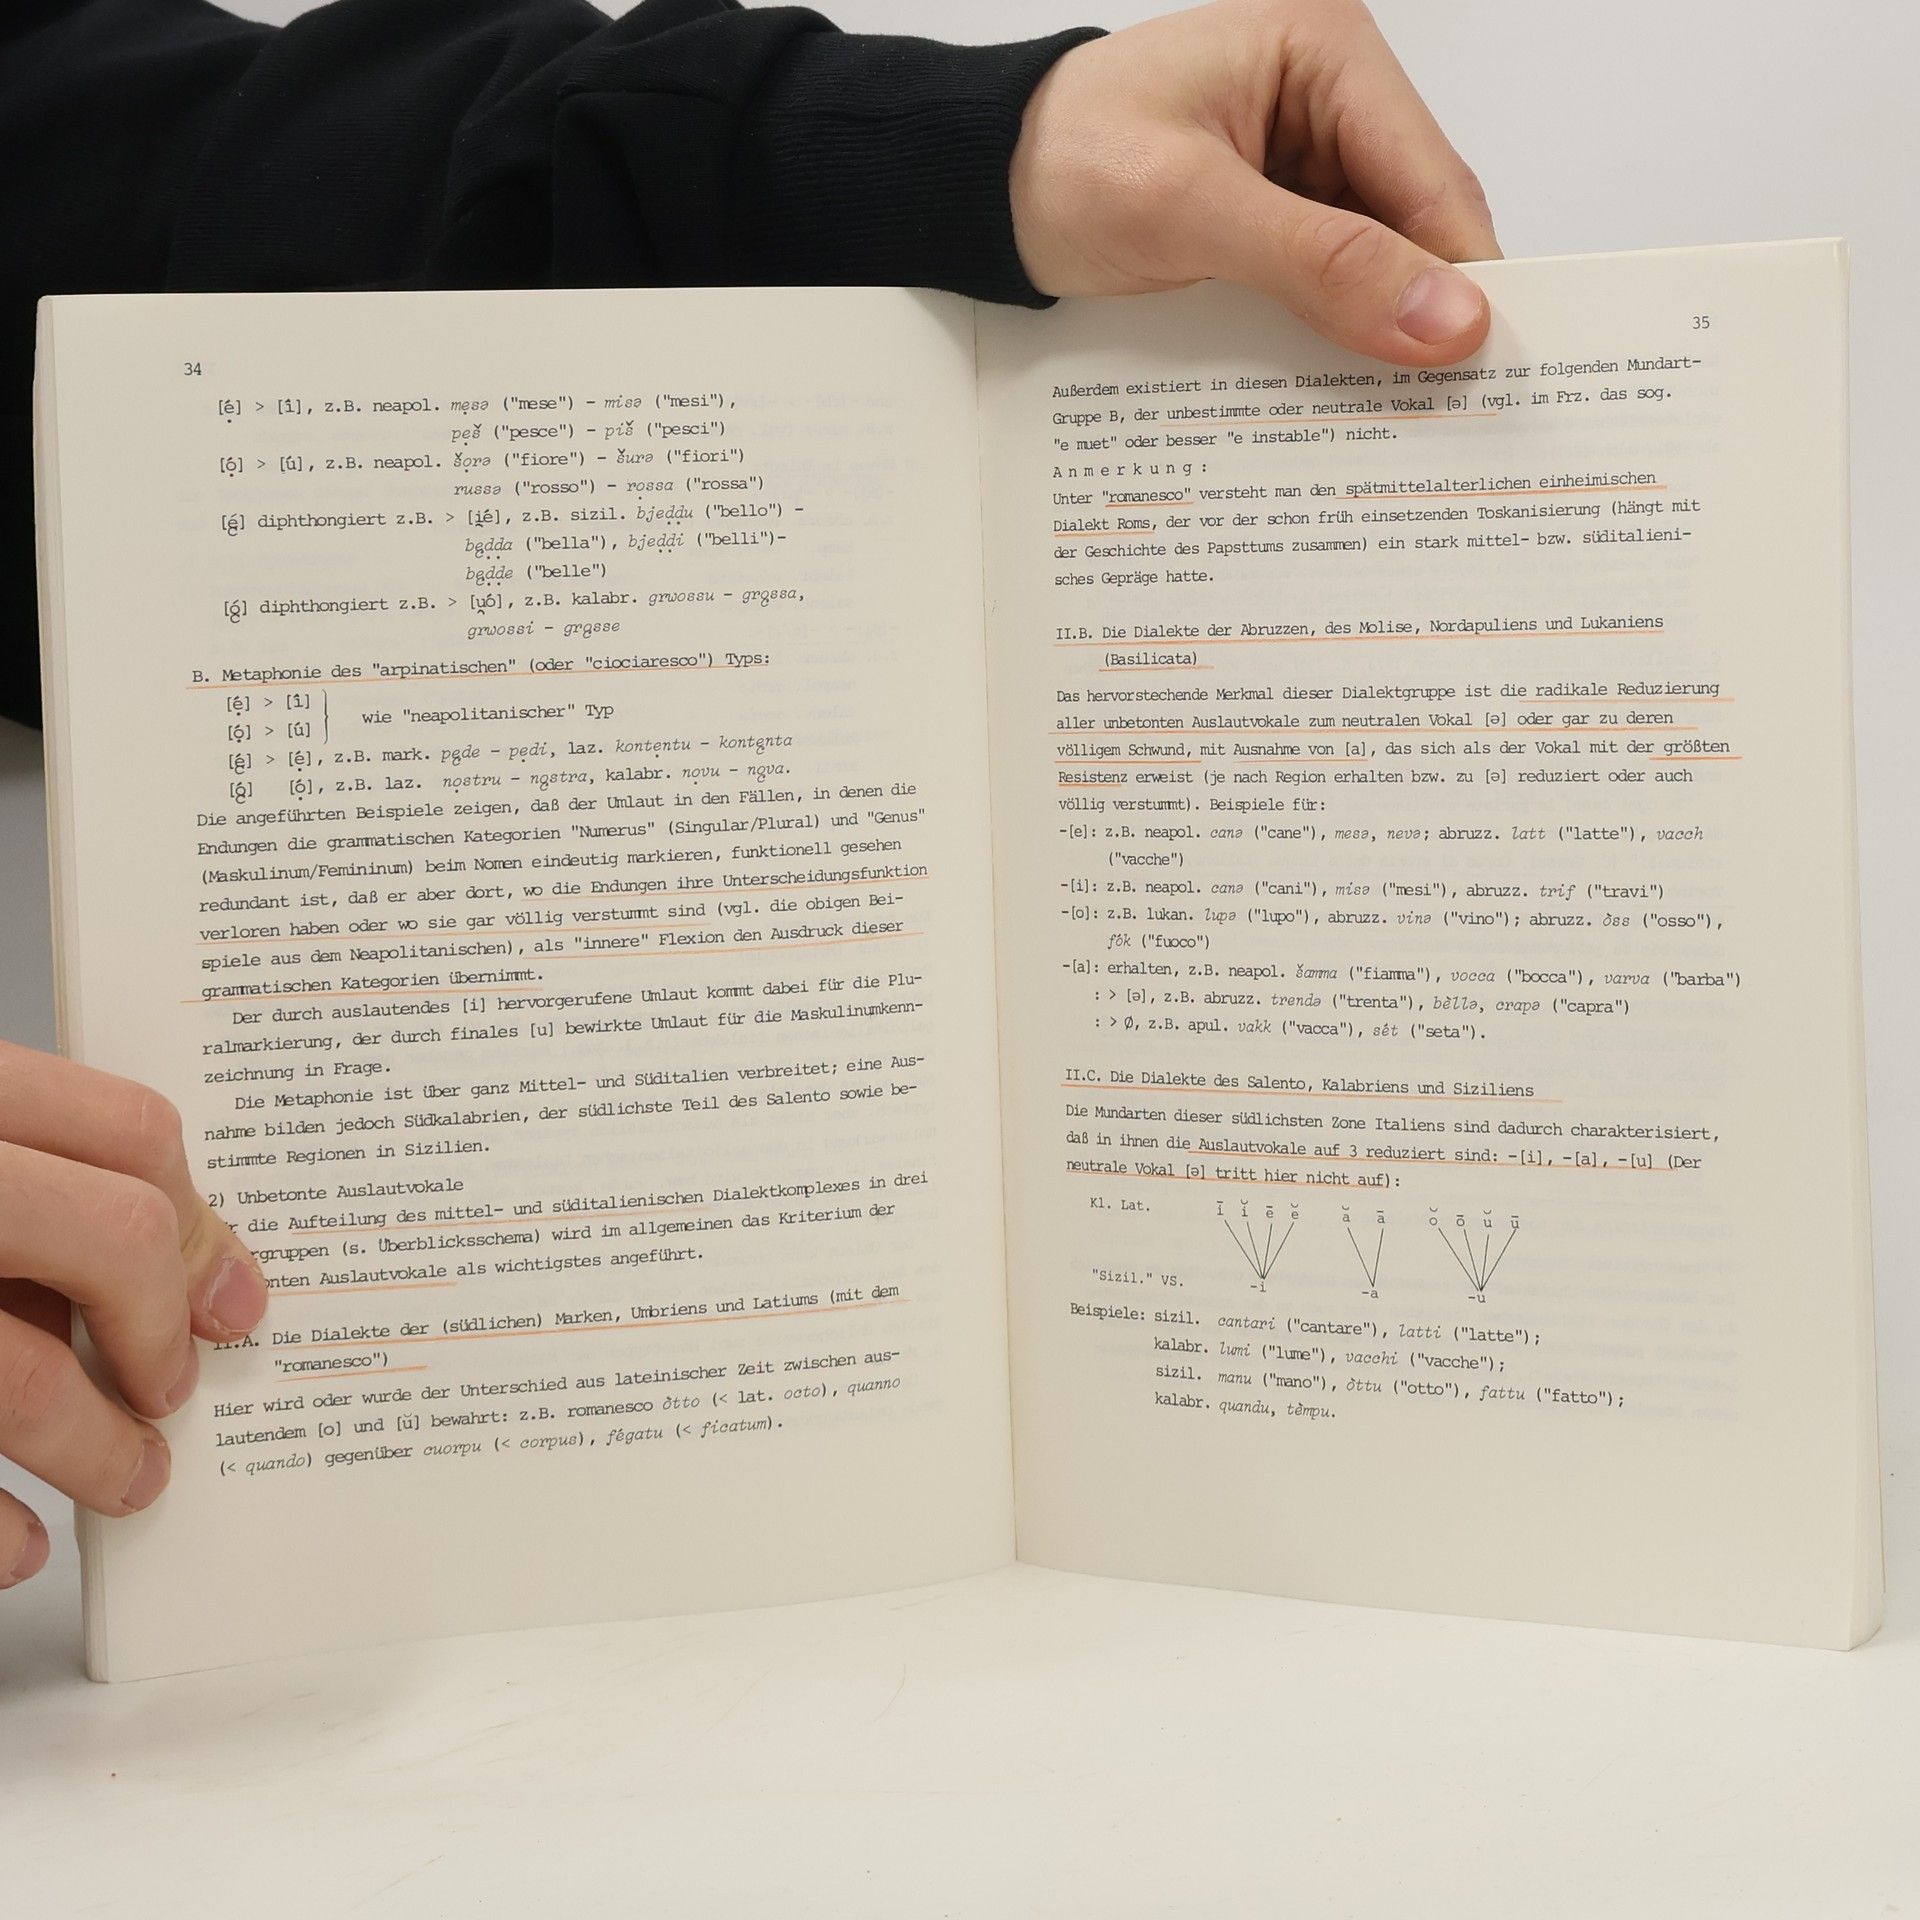 34
[ẹ́] > [í], z.B. neapol. mẹsə ("mese") - misə ("mesi"),
pẹš ("pesce") - piš ("pesci")
[ọ́] > [ú], z.B. neapol. šọrə ("fiore") - šurə ("fiori")
russə ("rosso") - rọssa ("rossa")
[ę́] diphthongiert z.B. > [i̯é], z.B. sizil. bjeḍḍu ("bello") -
bęḍḍa ("bella"), bjeḍḍi ("belli")-
bęḍḍe ("belle")
[ǫ́] diphthongiert z.B. > [u̯ó], z.B. kalabr. grwossu - grǫssa,
grwossi - grǫsse
B. Metaphonie des "arpinatischen" (oder "ciociaresco") Typs:
[ẹ́] > [í]
wie "neapolitanischer" Typ
[ọ́] > [ú]
[ę́] > [ẹ́], z.B. mark. pęde - pẹdi, laz. kontẹntu - kontęnta
[ǫ́] [ọ́], z.B. laz. nọstru - nǫstra, kalabr. nọvu - nǫva.
Die angeführten Beispiele zeigen, daß der Umlaut in den Fällen, in denen die
Endungen die grammatischen Kategorien "Numerus" (Singular/Plural) und "Genus"
(Maskulinum/Femininum) beim Nomen eindeutig markieren, funktionell gesehen
redundant ist, daß er aber dort, wo die Endungen ihre Unterscheidungsfunktion
verloren haben oder wo sie gar völlig verstummt sind (vgl. die obigen Bei-
spiele aus dem Neapolitanischen), als "innere" Flexion den Ausdruck dieser
grammatischen Kategorien übernimmt.
Der durch auslautendes [i] hervorgerufene Umlaut kommt dabei für die Plu-
ralmarkierung, der durch finales [u] bewirkte Umlaut für die Maskulinumkenn-
zeichnung in Frage.
Die Metaphonie ist über ganz Mittel- und Süditalien verbreitet; eine Aus-
nahme bilden jedoch Südkalabrien, der südlichste Teil des Salento sowie be-
stimmte Regionen in Sizilien.
2) Unbetonte Auslautvokale
die Aufteilung des mittel- und süditalienischen Dialektkomplexes in drei
(s. Überblicksschema) wird im allgemeinen das Kriterium der
Auslautvokale als wichtigstes angeführt.
II.A. Die Dialekte der (südlichen) Marken, Umbriens und Latiums (mit dem
"romanesco")
Hier wird oder wurde der Unterschied aus lateinischer Zeit zwischen aus-
lautendem [o] und [ŭ] bewahrt: z.B. romanesco òtto (< lat. octo), quanno
(< quando) gegenüber cuorpu (< corpus), fégatu (< ficatum).
35
Außerdem existiert in diesen Dialekten, im Gegensatz zur folgenden Mundart-
Gruppe B, der unbestimmte oder neutrale Vokal [ə] (vgl. im Frz. das sog.
"e muet" oder besser "e instable") nicht.
Anmerkung:
Unter "romanesco" versteht man den spätmittelalterlichen einheimischen
Dialekt Roms, der vor der schon früh einsetzenden Toskanisierung (hängt mit
der Geschichte des Papsttums zusammen) ein stark mittel- bzw. süditalieni-
sches Gepräge hatte.
II.B. Die Dialekte der Abruzzen, des Molise, Nordapuliens und Lukaniens
(Basilicata)
Das hervorstechende Merkmal dieser Dialektgruppe ist die radikale Reduzierung
aller unbetonten Auslautvokale zum neutralen Vokal [ə] oder gar zu deren
völligem Schwund, mit Ausnahme von [a], das sich als der Vokal mit der größten
Resistenz erweist (je nach Region erhalten bzw. zu [ə] reduziert oder auch
völlig verstummt). Beispiele für:
-[e]: z.B. neapol. canə ("cane"), mesə, nevə; abruzz. latt ("latte"), vacch
("vacche")
-[i]: z.B. neapol. canə ("cani"), misə ("mesi"), abruzz. trif ("travi")
-[o]: z.B. lukan. lupə ("lupo"), abruzz. vinə ("vino"); abruzz. òss ("osso"),
fók ("fuoco")
-[a]: erhalten, z.B. neapol. šamma ("fiamma"), vocca ("bocca"), varva ("barba")
: > [ə], z.B. abruzz. trendə ("trenta"), bèllə, crapə ("capra")
: > Ø, z.B. apul. vakk ("vacca"), sét ("seta").
II.C. Die Dialekte des Salento, Kalabriens und Siziliens
Die Mundarten dieser südlichsten Zone Italiens sind dadurch charakterisiert,
daß in ihnen die Auslautvokale auf 3 reduziert sind: -[i], -[a], -[u] (Der
neutrale Vokal [ə] tritt hier nicht auf):
Kl. Lat. ī ĭ ē ĕ ă ā ŏ ō ŭ ū
"Sizil." VS. -i -a -u
Beispiele: sizil. cantari ("cantare"), latti ("latte");
kalabr. lumi ("lume"), vacchi ("vacche");
sizil. manu ("mano"), òttu ("otto"), fattu ("fatto");
kalabr. quandu, tèmpu.